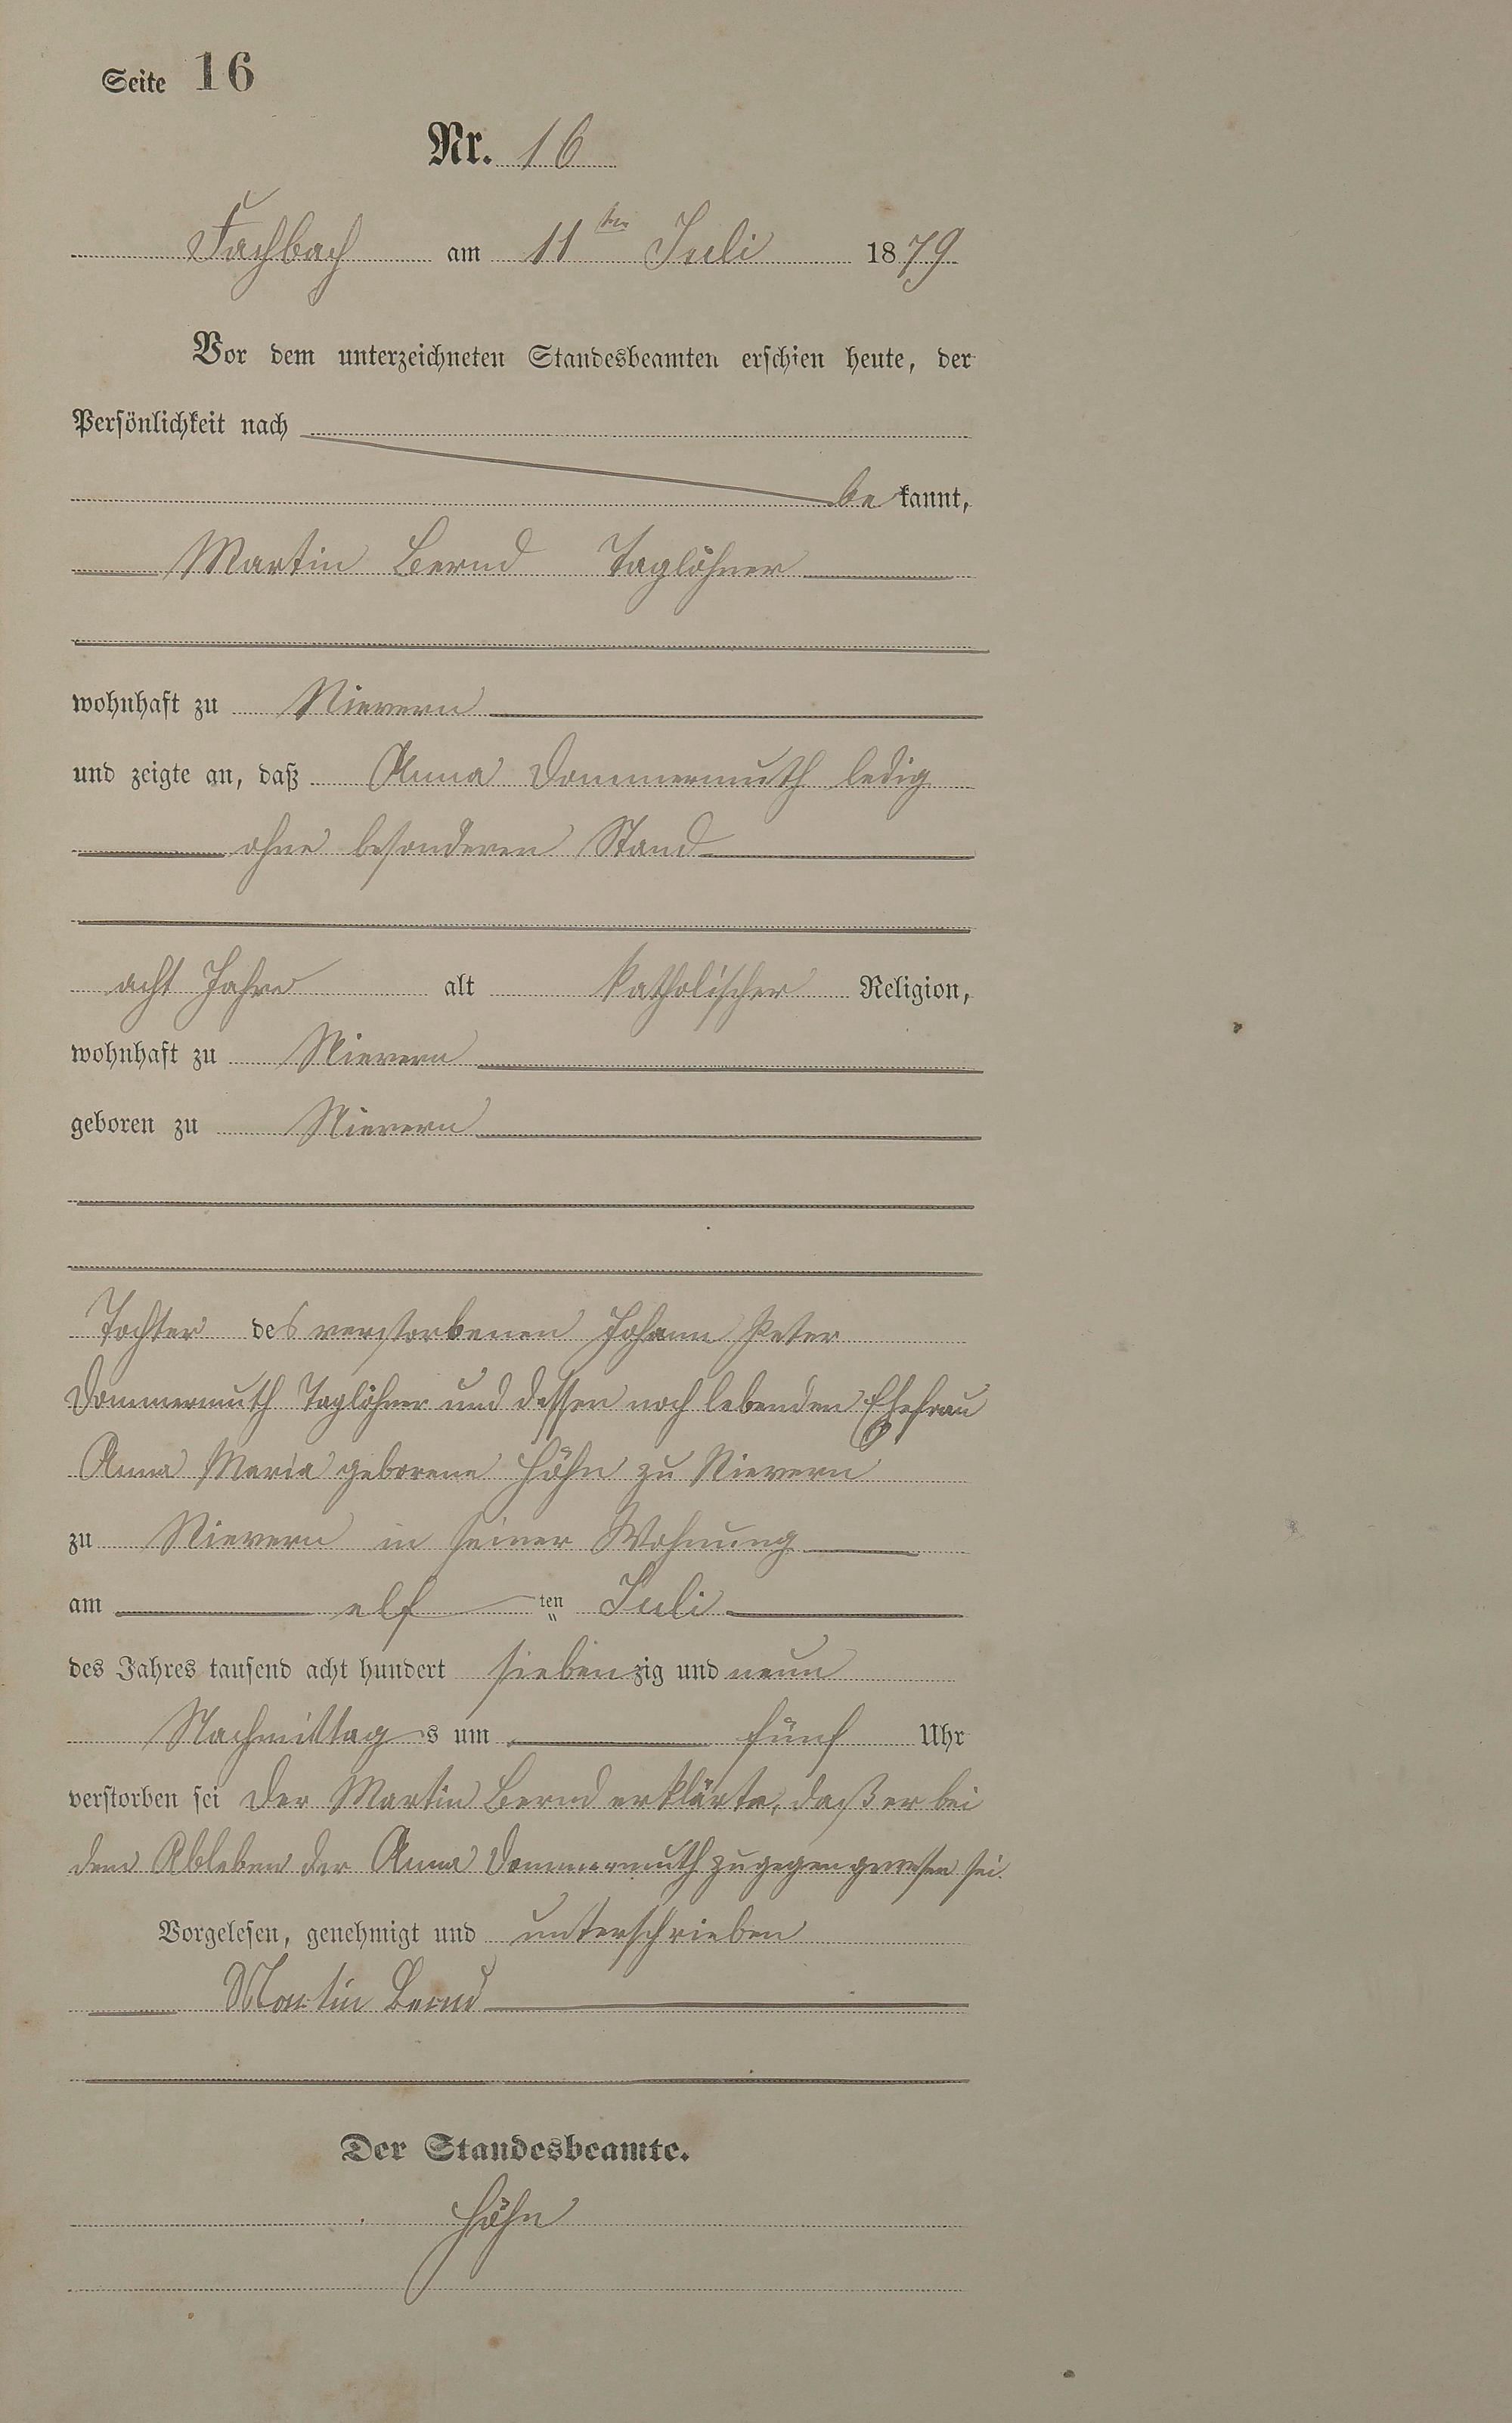 Seite 16
Nr. 16
Fachbach am 11ten Juli 1879
Vor dem unterzeichneten Standesbeamten erschien heute, der
Persönlichkeit nach
be kannt,
Martin Bernd Taglöhner
wohnhaft zu Nievern
und zeigte an, daß Anna Dommermuth ledig
ohne besonderen Stand
acht Jahre alt katholischer Religion,
wohnhaft zu Nievern
geboren zu Nievern
Tochter des verstorbenen Johann Peter
Dommermuth Taglöhner und dessen noch lebenden Ehefrau
Anna Maria geborene Höhn zu Nievern
zu Nievern in seiner Wohnung
am elf ten Juli
des Jahres tausend acht hundert siebenzig und neun
Nachmittags um fünf Uhr
verstorben sei Der Martin Bernd erklärte, daß er bei
dem Ableben der Anna Dommermuth zugegen gewesen sei.
Vorgelesen, genehmigt und unterschrieben
Martin Bernd
Der Standesbeamte.
Höhn